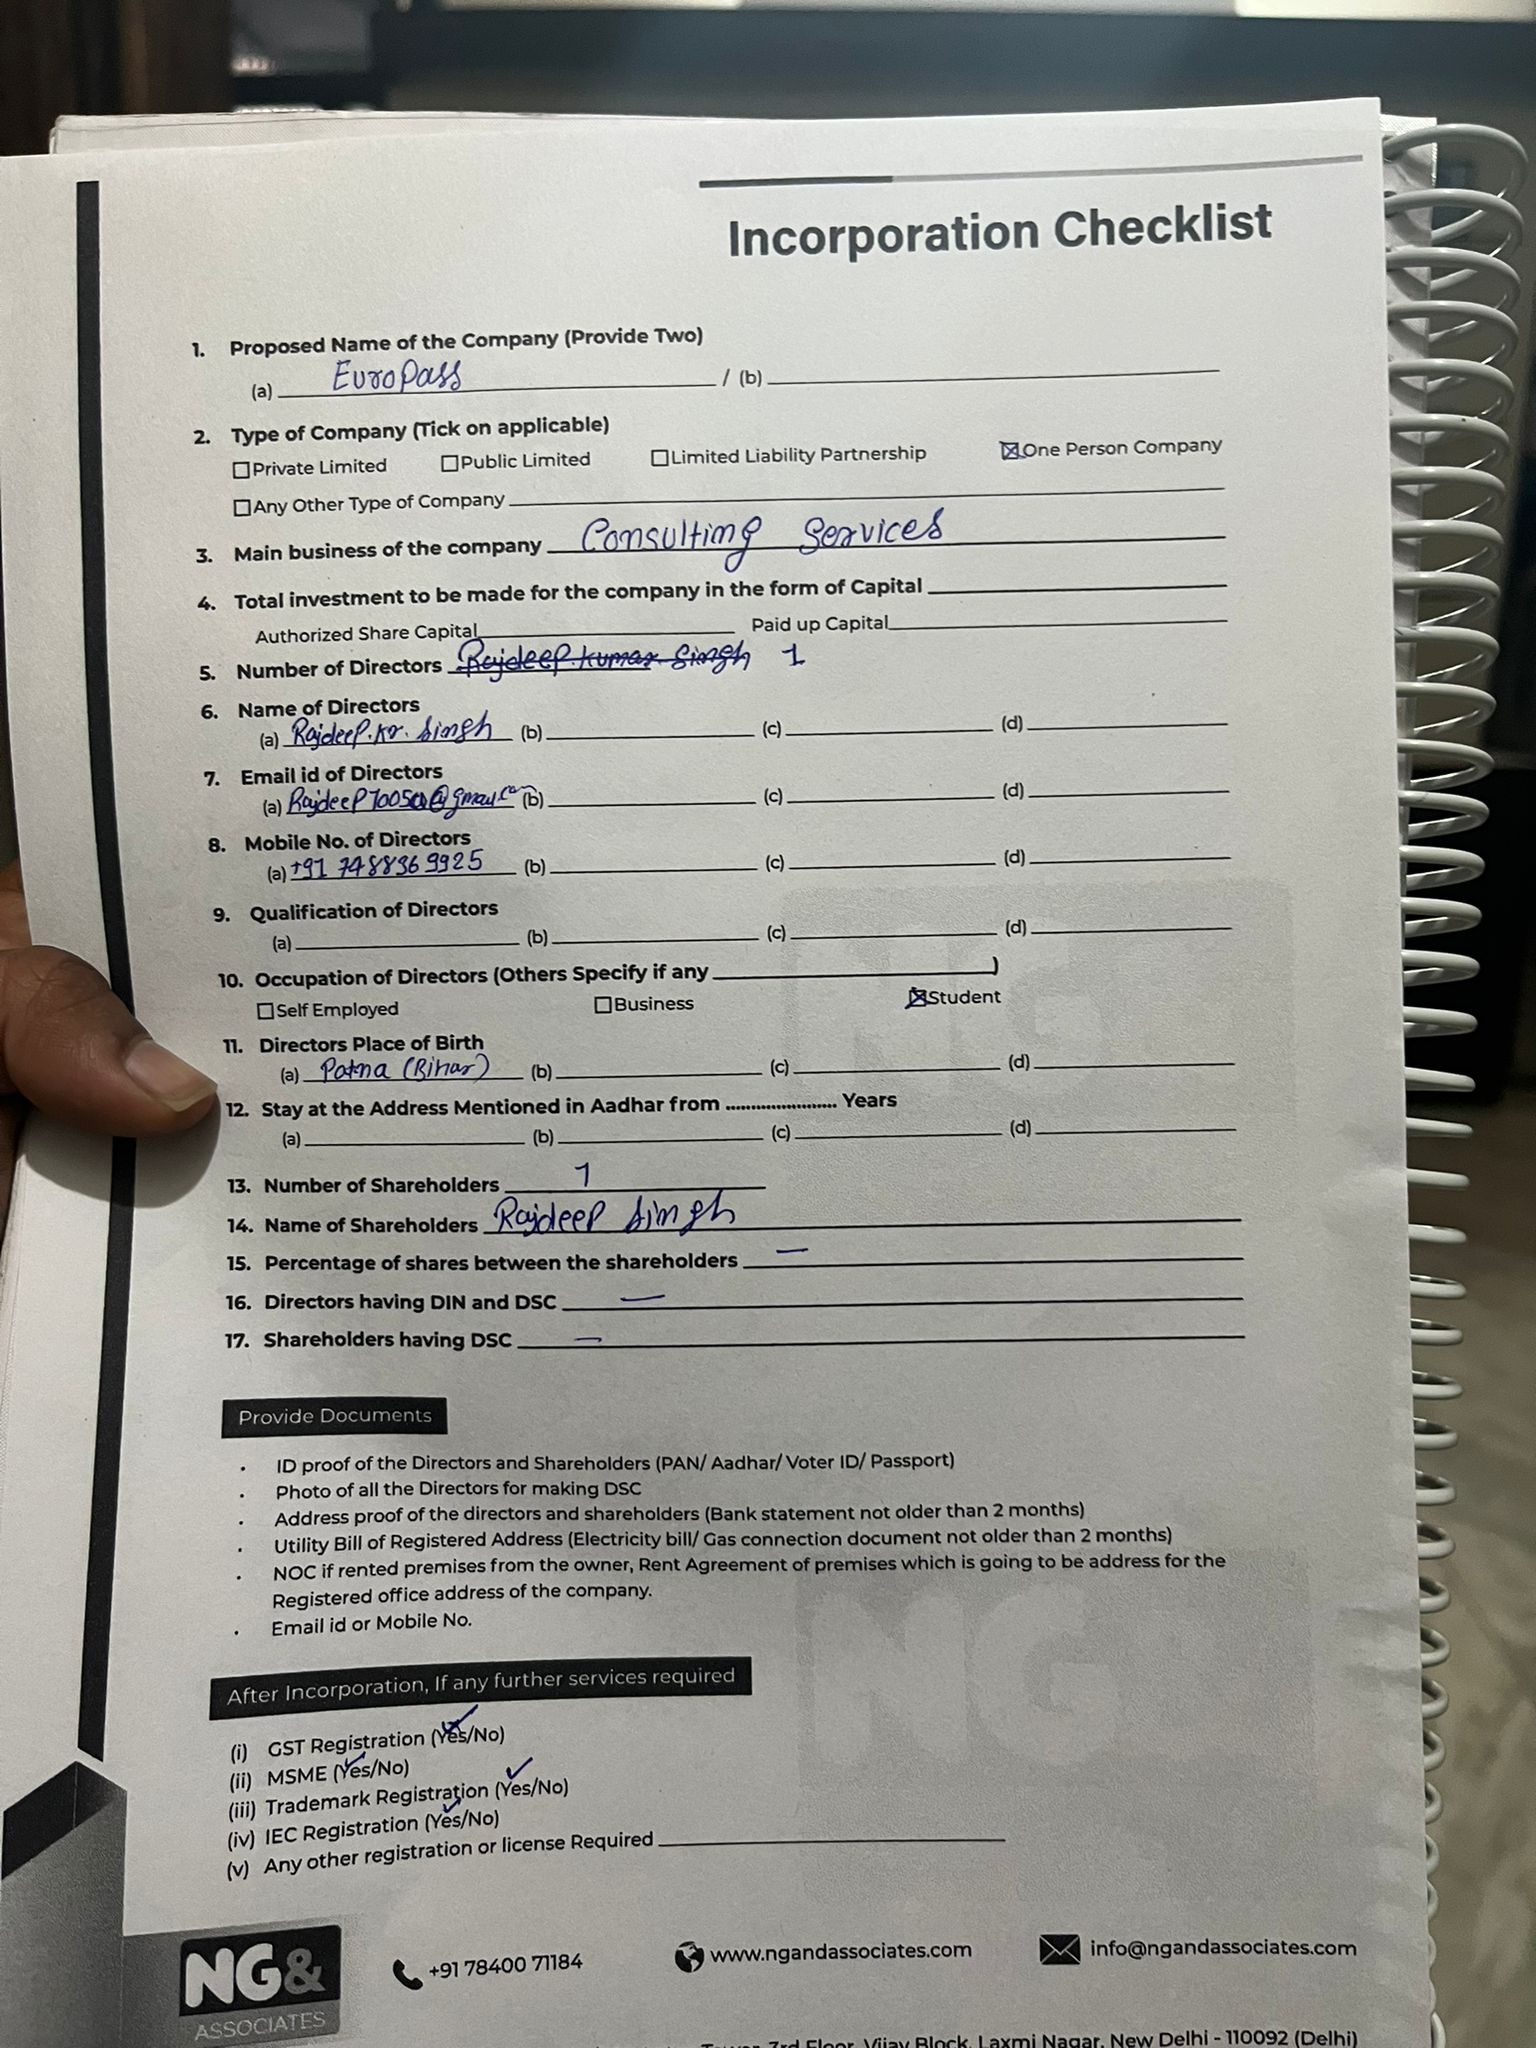 Incorporation Checklist
1. Proposed Name of the Company (Provide Two)
(a) EuroPass / (b)
2. Type of Company (Tick on applicable)
☐Private Limited ☐Public Limited ☐Limited Liability Partnership ☒One Person Company
☐Any Other Type of Company
3. Main business of the company Consulting Services
4. Total investment to be made for the company in the form of Capital
Authorized Share Capital Paid up Capital
5. Number of Directors Rajdeep.Kumar Singh 1
6. Name of Directors
(a) Rajdeep.Kr. Singh (b) (c) (d)
7. Email id of Directors
(a) (b) (c) (d)
8. Mobile No. of Directors
(a) +91 7488369925 (b) (c) (d)
9. Qualification of Directors
(a) (b) (c) (d)
10. Occupation of Directors (Others Specify if any )
☐Self Employed ☐Business ☒Student
11. Directors Place of Birth
(a) Patna (Bihar) (b) (c) (d)
12. Stay at the Address Mentioned in Aadhar from ...................... Years
(a) (b) (c) (d)
13. Number of Shareholders 1
14. Name of Shareholders Rajdeep Singh
15. Percentage of shares between the shareholders —
16. Directors having DIN and DSC —
17. Shareholders having DSC —
Provide Documents
• ID proof of the Directors and Shareholders (PAN/ Aadhar/ Voter ID/ Passport)
• Photo of all the Directors for making DSC
• Address proof of the directors and shareholders (Bank statement not older than 2 months)
• Utility Bill of Registered Address (Electricity bill/ Gas connection document not older than 2 months)
• NOC if rented premises from the owner, Rent Agreement of premises which is going to be address for the
Registered office address of the company.
• Email id or Mobile No.
After Incorporation, If any further services required
(i) GST Registration (Yes/No)
(ii) MSME (Yes/No)
(iii) Trademark Registration (Yes/No)
(iv) IEC Registration (Yes/No)
(v) Any other registration or license Required
NG&
ASSOCIATES
+91 78400 71184 www.ngandassociates.com info@ngandassociates.com
Tower, 3rd Floor, Vijay Block, Laxmi Nagar, New Delhi - 110092 (Delhi)